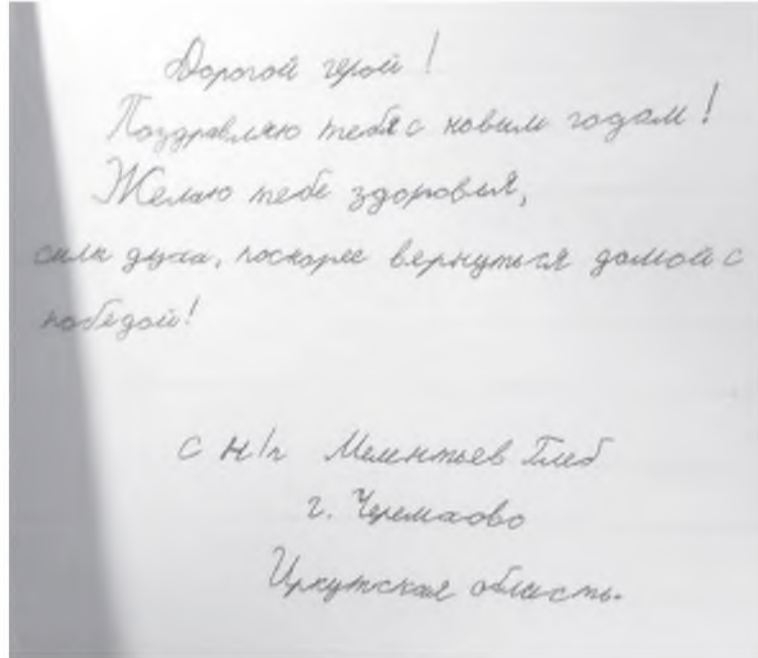 Дорогой герой!
Поздравляю тебя с новым годом!
Желаю тебе здоровья,
силы духа, поскорее вернуться домой с
победой!
С Н/п Мелентьев Глеб
г. Черемхово
Иркутская область.